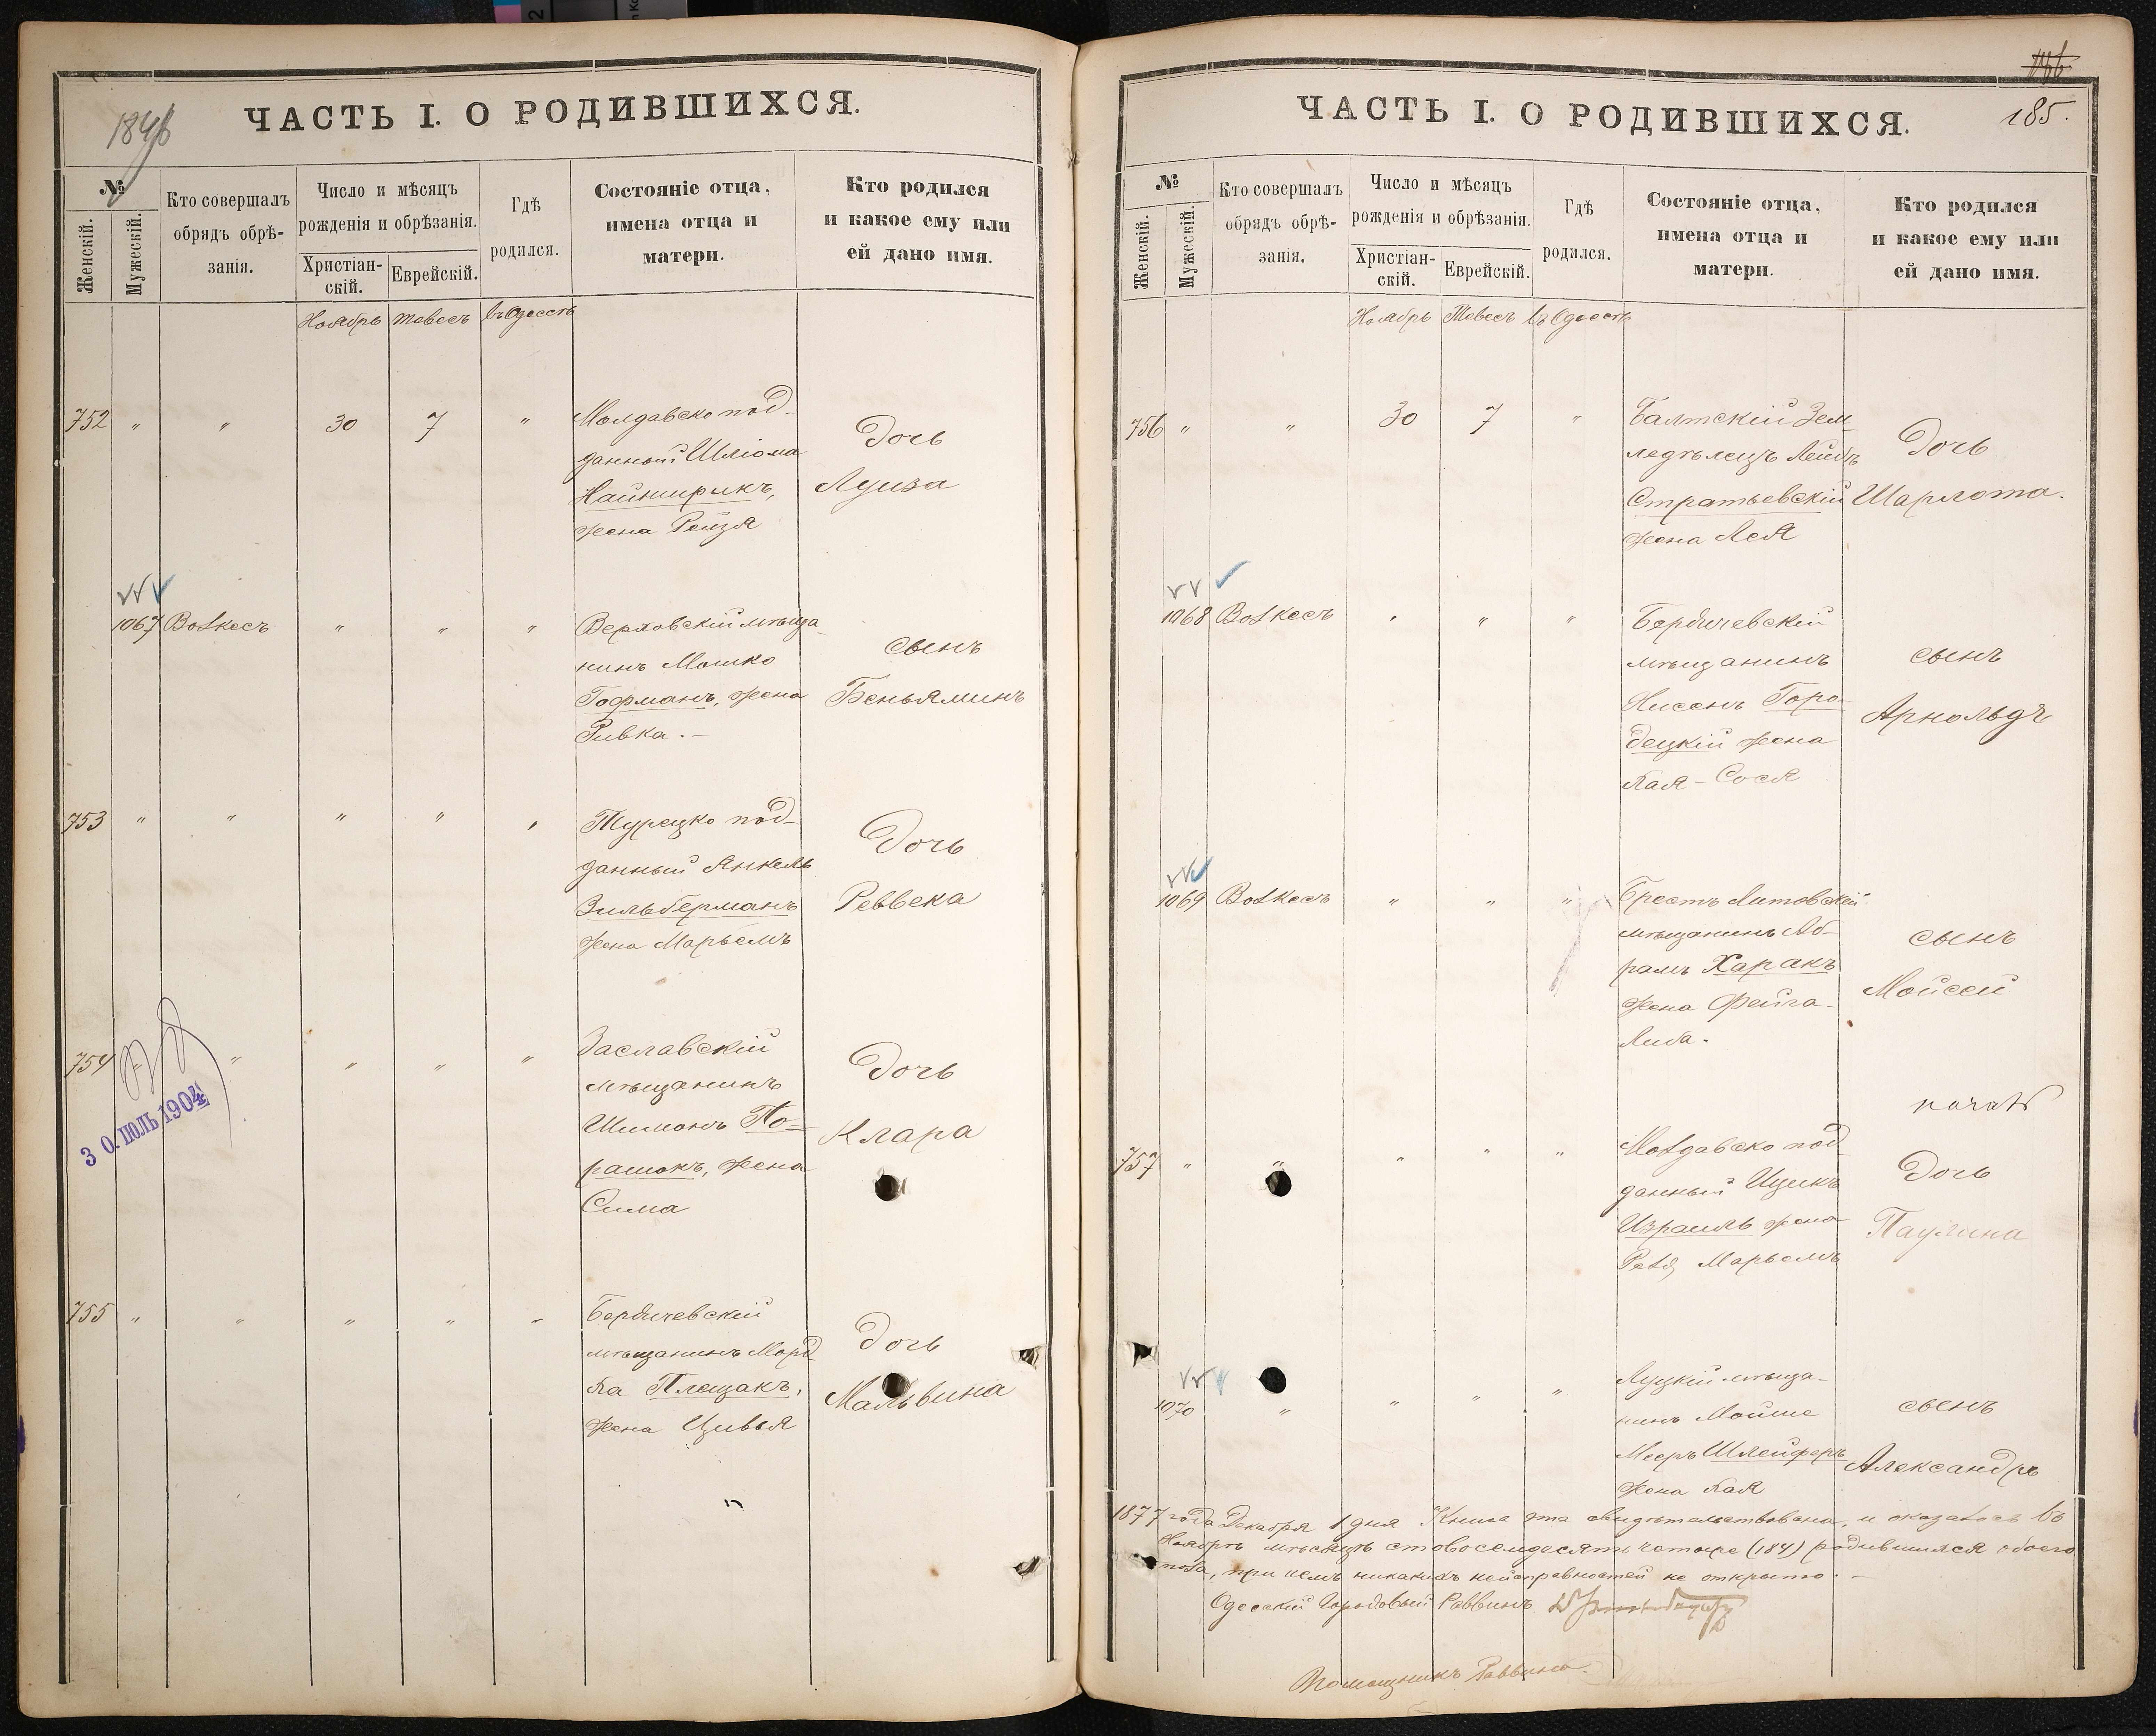 ЧАСТЬ I. О РОДИВШИХСЯ.
№
Женскій.
Мужескій.
Кто совершалъ
обрядъ обрѣ-
занія.
Число и мѣсяцъ
рожденія и обрѣзанія.
Христіан-
скій.
Еврейскій.
Гдѣ
родился.
Состояніе отца,
имена отца и
матери.
Кто родился
и какое ему или
ей дано имя.
Ноябрь Тевесъ въ Одессѣ
752 " " 30 7 "
Молдавско под-
данный Шліома
Найширикъ,
жена Рейзя
Дочь
Луиза
1067 Волкесъ " " "
Верховскій мѣща-
нинъ Мошко
Гофманъ, жена
Ривка.-
сынъ
Беньяминъ
753 " " " " "
Турецко под-
данный Янкель
Зильберманъ
жена Марьемъ
Дочь
Реввека
754 " " " " "
Заславскій
мѣщанинъ
Шимонъ По-
рашокъ, жена
Сима
Дочь
Клара
3 0. ІЮЛЬ 1904
755 " " " " "
Бердичевскій
мѣщанинъ Морд-
ка Плещакъ,
жена Цивья
Дочь
Мальвина
185.
ЧАСТЬ I. О РОДИВШИХСЯ.
№
Женскій.
Мужескій.
Кто совершалъ
обрядъ обрѣ-
занія.
Число и мѣсяцъ
рожденія и обрѣзанія.
Христіан-
скій.
Еврейскій.
Гдѣ
родился.
Состояніе отца,
имена отца и
матери.
Кто родился
и какое ему или
ей дано имя.
Ноябрь Тевесъ въ Одессѣ
756 " " 30 7 "
Балтскій Зем-
ледѣлецъ Лейбъ
Стратьевскій
жена Лея
Дочь
Шарлота.
1068 Волкесъ " " "
Бердичевскій
мѣщанинъ
Нисонъ Горо-
децкій жена
Хая-Сося
сынъ
Арнольдъ
1069 Волкесъ " " "
Брестъ Литовскій
мѣщанинъ Аб-
рамъ Харакъ
жена Фейга-
Либа.
сынъ
Мойсей
757 " " " " "
Молдавско под-
данный Ицикъ
Израиль жена
Марьемъ
Дочь
Паулина
1070 " " " "
Луцкій мѣща-
нинъ Мойше
Мееръ Шлейферъ
жена Хая
сынъ
Александръ
1877 года Декабря 1 дня Книга эта свидѣтельствована, и оказалось въ
Ноябрѣ мѣсяцѣ сто восемдесятъ четыре (184) родившихся обоего
пола, при чемъ никакихъ неисправностей не открыто.-
Одесскій Городовый Раввинъ
Помощникъ Раввина.